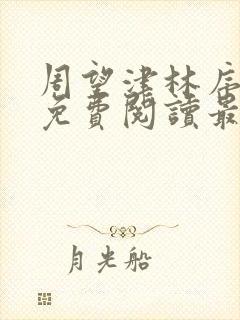 周望津林辰
免費閱讀最
月光船